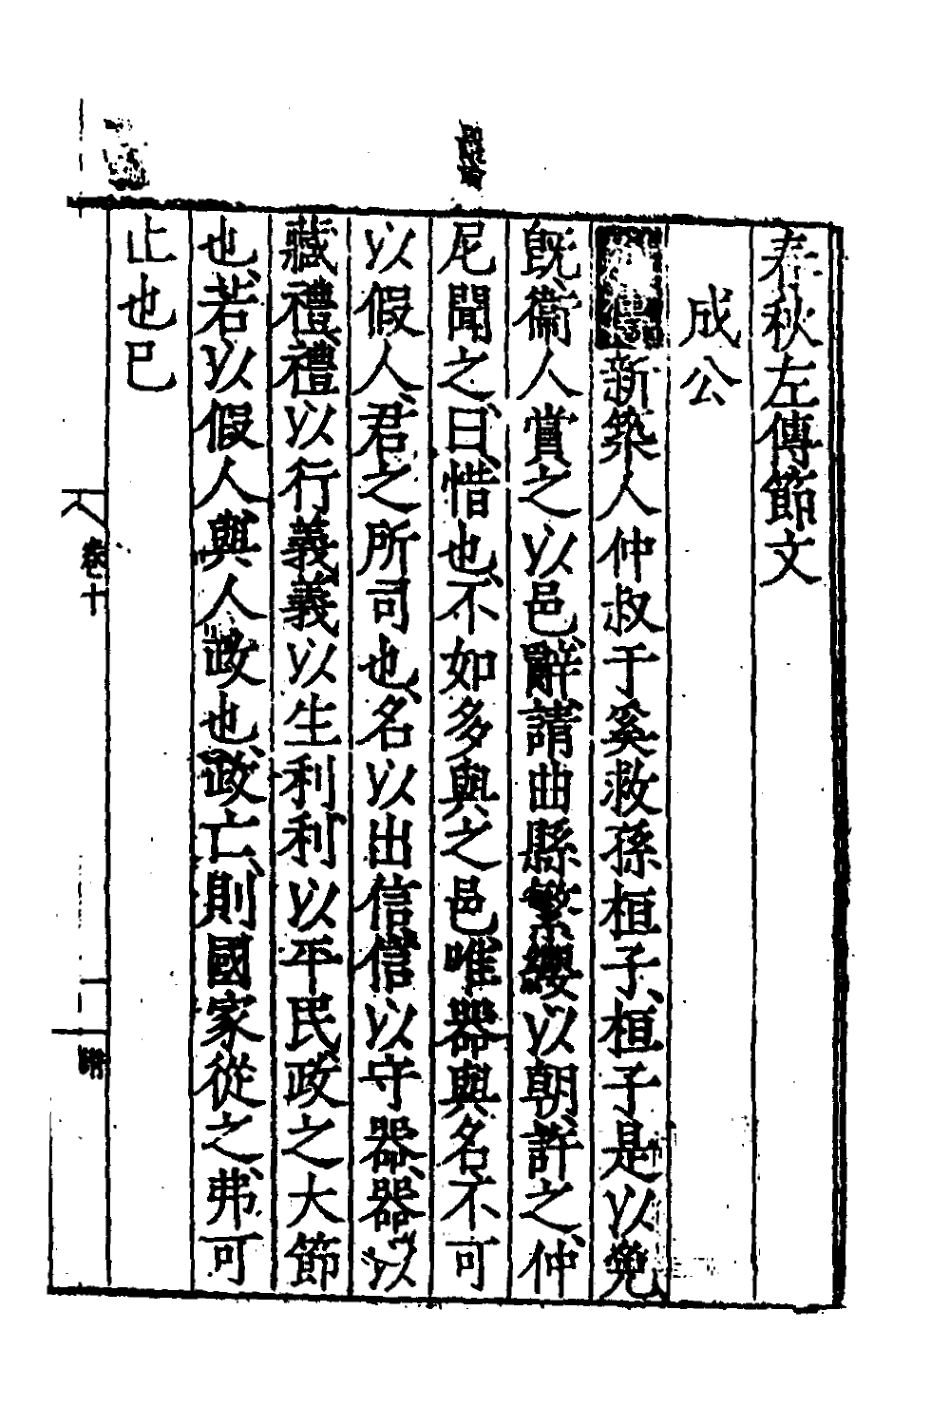 春秋左傳節文
成公
新築人仲叔于奚救孫桓子桓子是以免
既衞人賞之以邑辭請曲縣繁纓以朝許之仲
尼聞之曰惜也不如多與之邑唯器與名不可
以假人君之所司也名以出信信以守器器以
藏禮禮以行義義以生利利以平民政之大節
也若以假人與人政也政亡則國家從之弗可
止也已
卷十